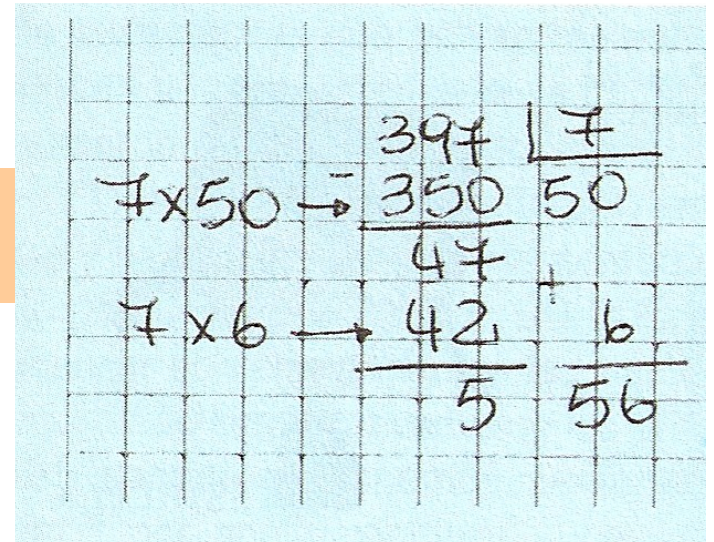 397 7
7x50 → - 350 50
47 +
7x6 → 42 6
5 56